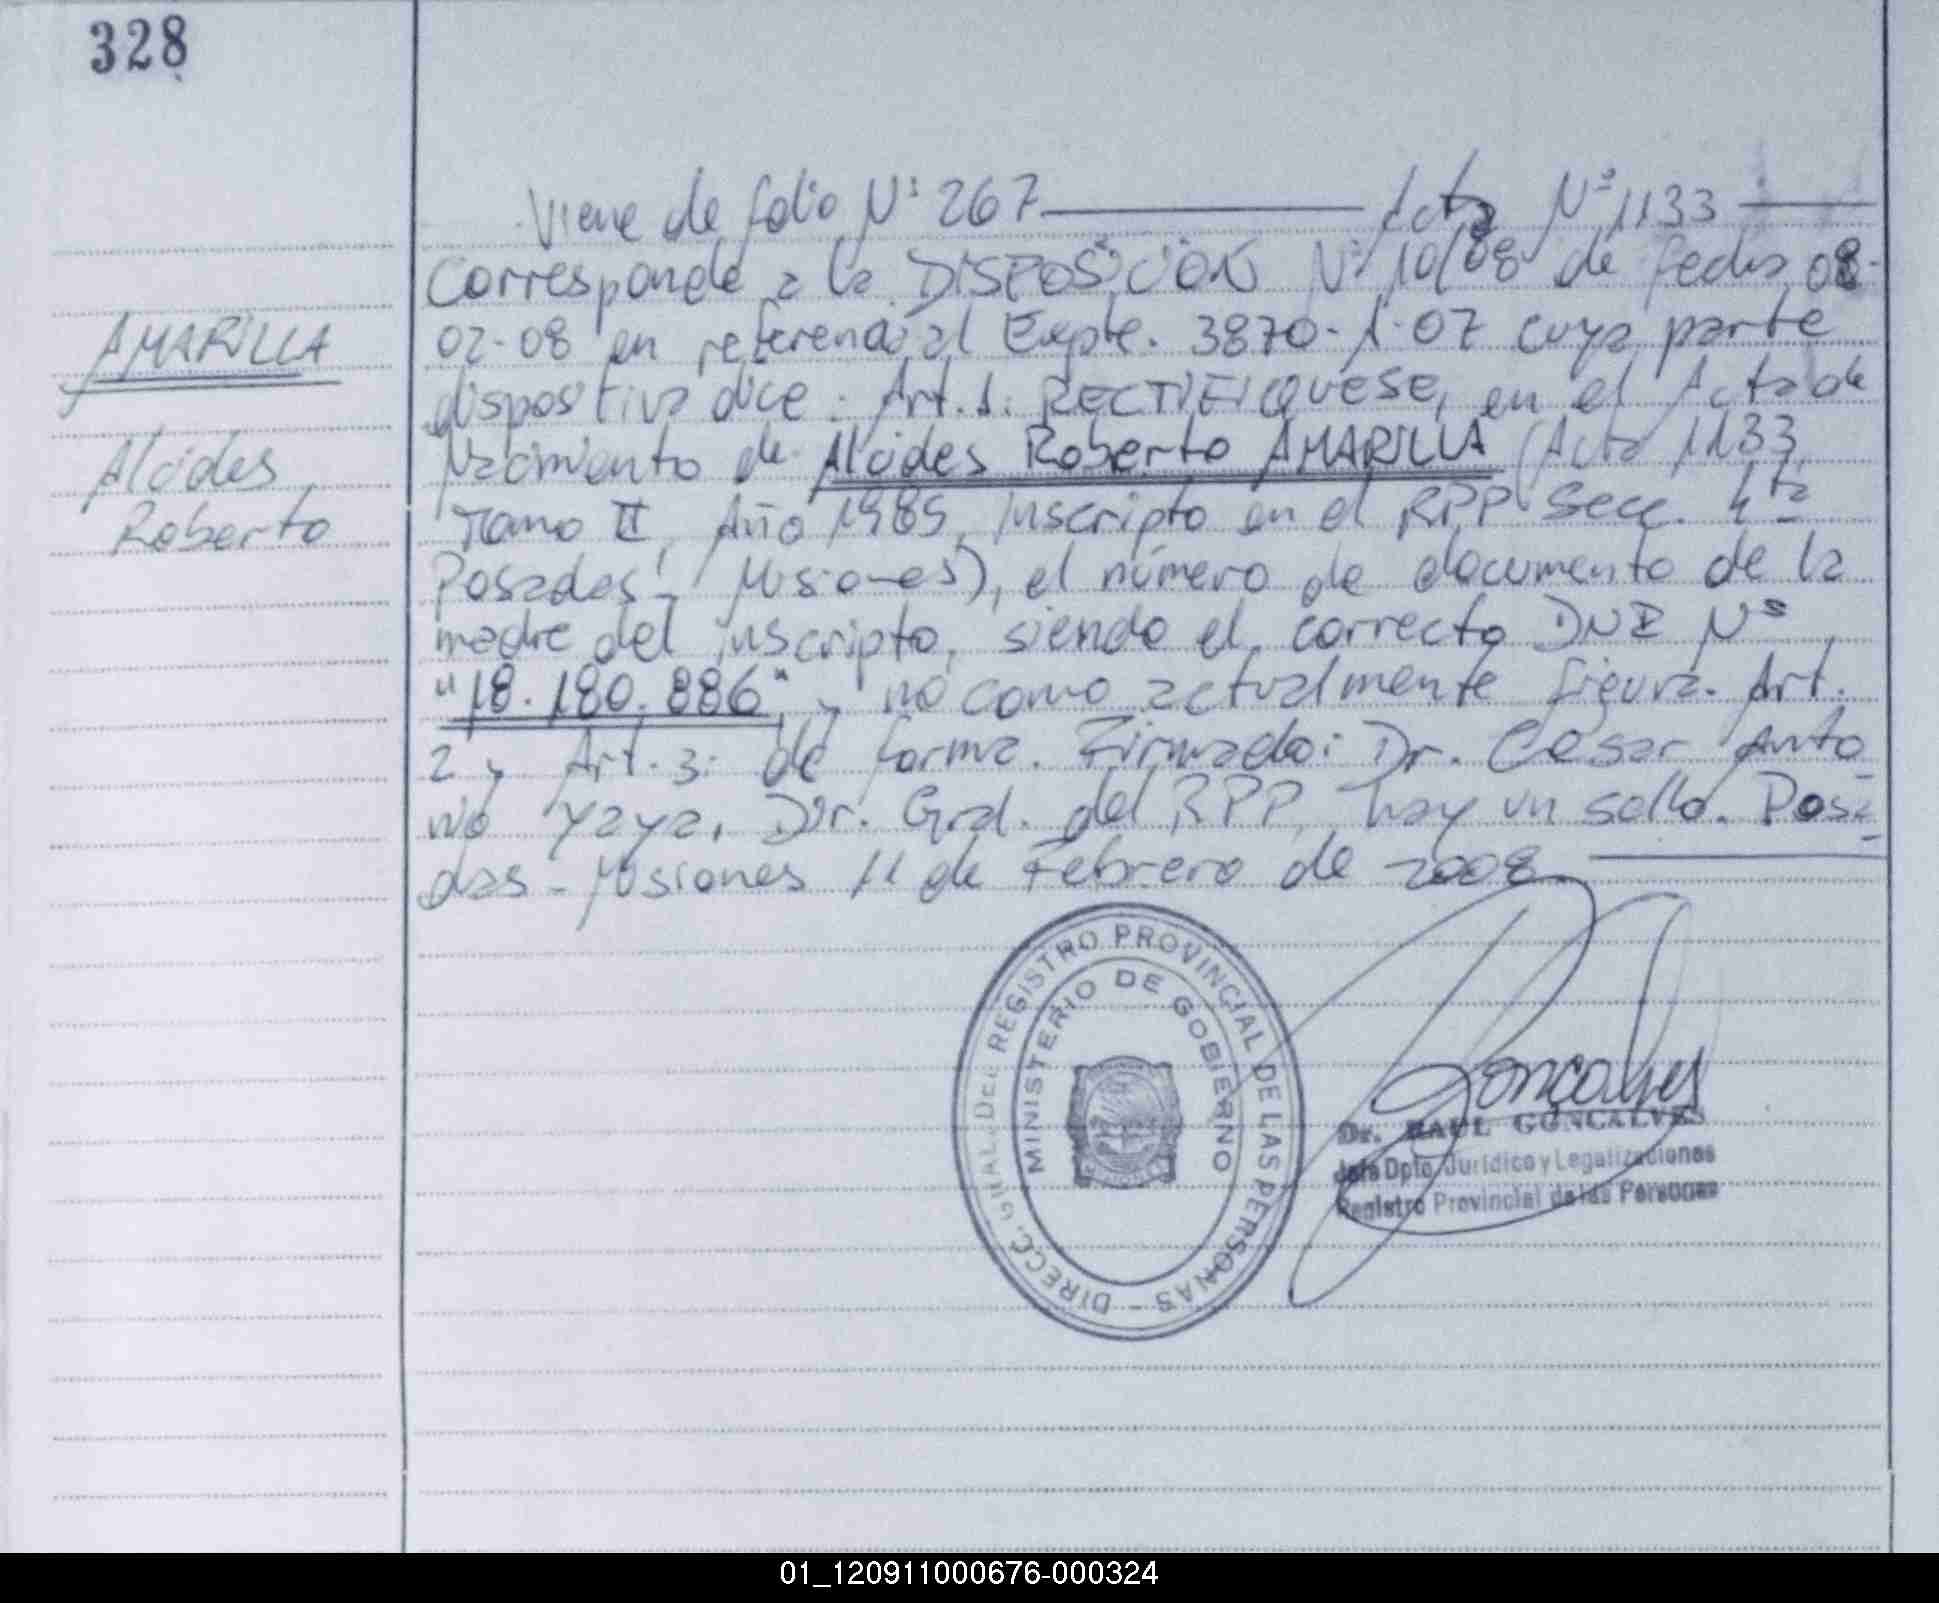 328
Viene de folio Nº 267 Acta Nº 1133
Corresponde a la DISPOSICION Nº 10/08 de fecha 08-
02-08 en referencia al Expte. 3870-1-07 cuya parte
dispositiva dice: Art. 1: RECTIFIQUESE, en el Acta de
Nacimiento de Alcides Roberto AMARILLA (Acta 1133,
Tomo II, Año 1989, inscripto en el RPP Secc. 4ta
Posadas - Misiones), el número de documento de la
madre del inscripto, siendo el correcto DNI Nº
"18.180.886" y no como actualmente figura. Art.
2 y Art. 3: de forma. Firmado: Dr. Cesar Anto
nio Yaya, Dir. Gral. del RPP, hay un sello. Posa
das - Misiones 11 de Febrero de 2008
AMARILLA
Alcides
Roberto
DIRECC. GRAL. DEL REGISTRO PROVINCIAL DE LAS PERSONAS -
MINISTERIO DE GOBIERNO
Goncalves
Dr. RAUL GONCALVES
Jefe Dpto. Jurídico y Legalizaciones
Registro Provincial de las Personas
01_120911000676-000324